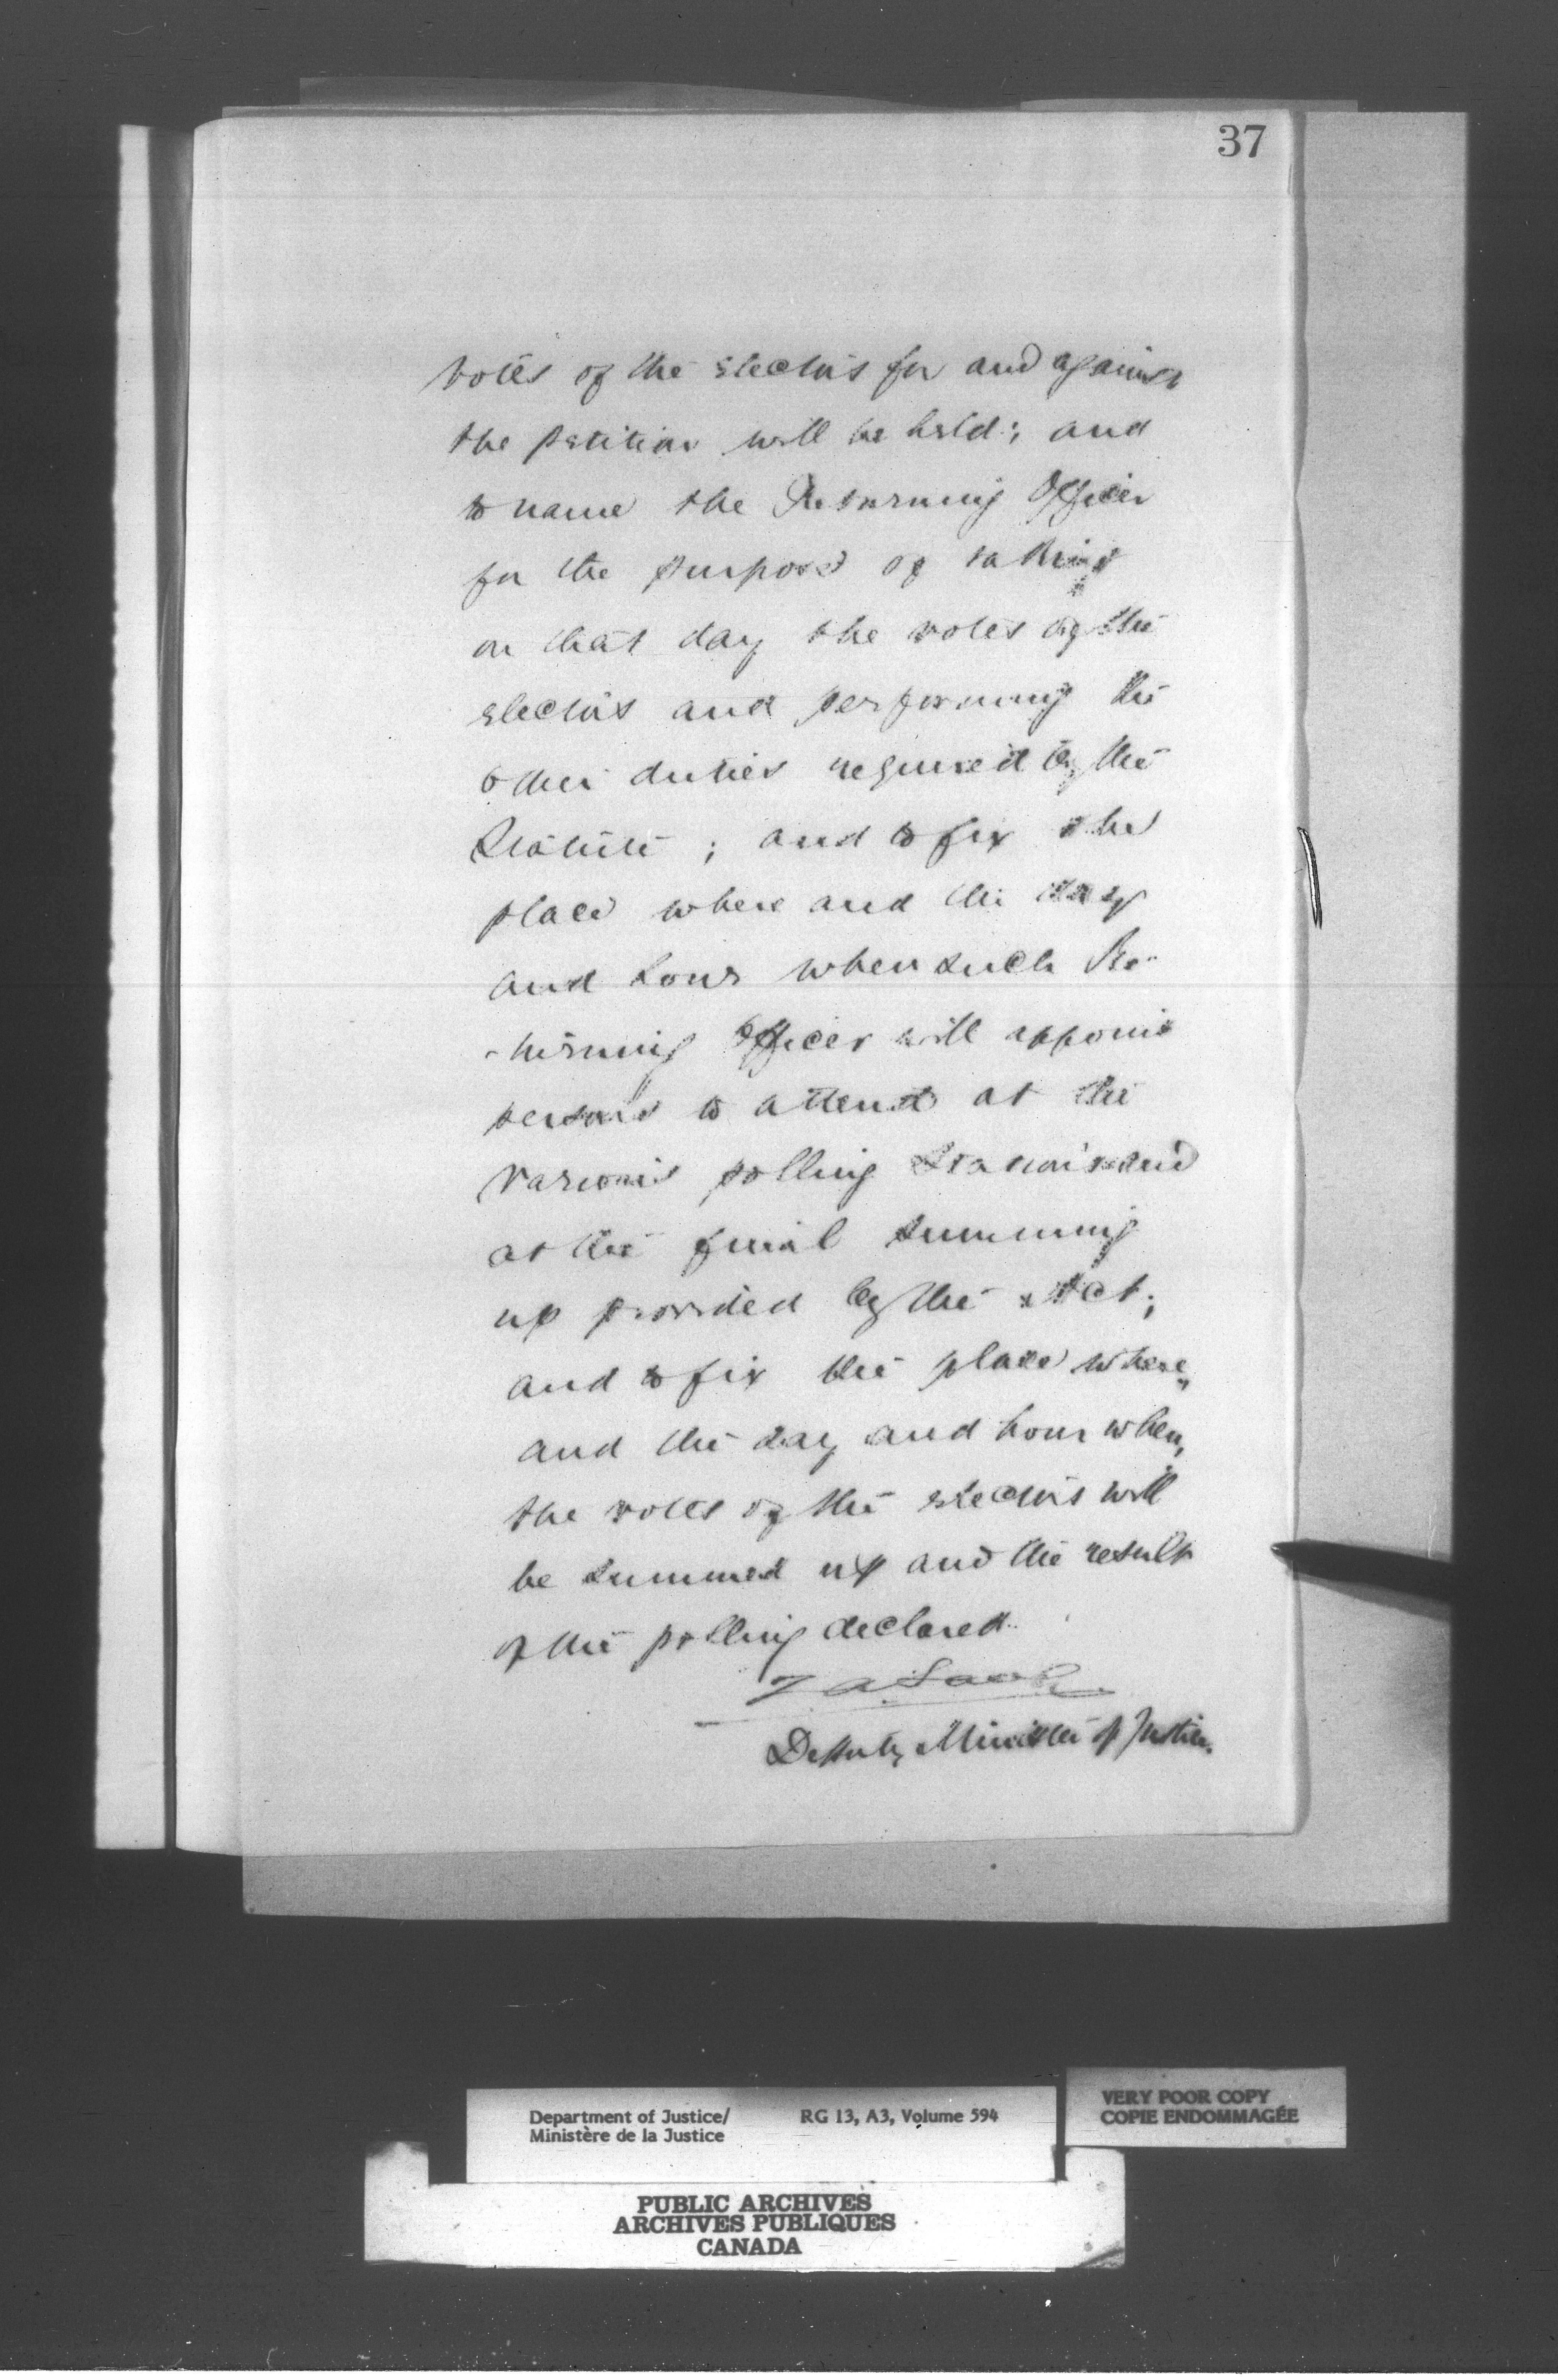 37
votes of the electors for and against
the petition will be held; and
to name the Returning Officer
for the purpose of taking
on that day the votes of the
electors and performing the
other duties required by the
Statute; and to fix the
place where and the day
and hour when such Re-
-turning Officer will appoint
persons to attend at the
various polling Stations and
at the final summing
up provided by the Act;
and to fix the place where,
and the day and hour when,
the votes of the electors will
be summed up and the result
of the polling declared.
Deputy Minister of Justice.
Department of Justice/ RG 13, A3, Volume 594
Ministère de la Justice
VERY POOR COPY
COPIE ENDOMMAGÉE
PUBLIC ARCHIVES
ARCHIVES PUBLIQUES
CANADA